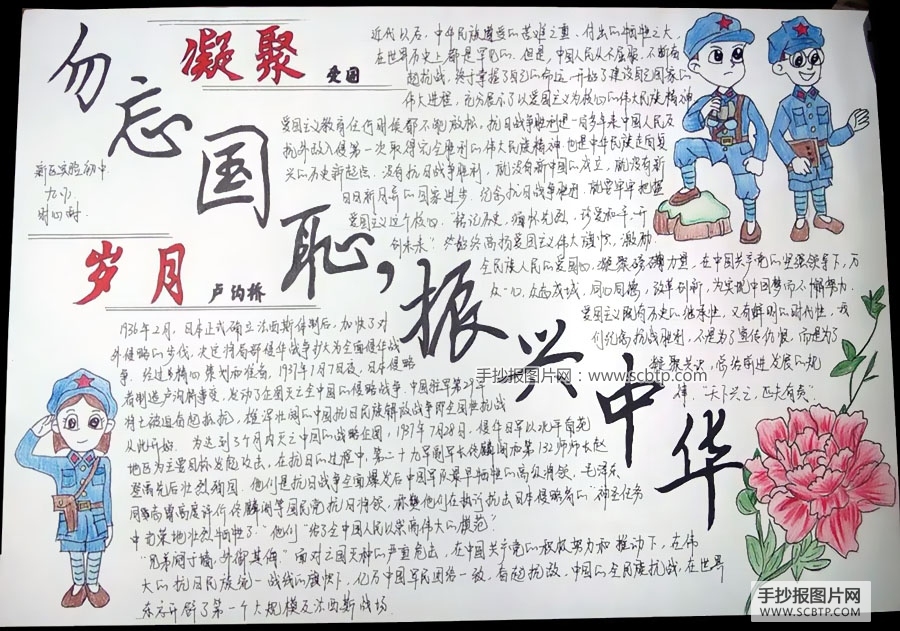 勿忘国耻，振兴中华
凝聚 爱国
近代以后，中华民族遭受的苦难之重，付出的牺牲之大，
在世界历史上都是罕见的。但是，中国人民从不屈服，不断奋
起抗战，终于掌握了自己的命运，开始了建设自己国家的
伟大进程，充分展示了以爱国主义为核心的伟大民族精神
爱国主义教育任何时候都不能放松。抗日战争胜利是一百多年来中国人民反
抗外敌入侵第一次取得完全胜利的伟大民族精神，也是中华民族走向复
兴的历史新起点。没有抗日战争胜利，就没有新中国的成立，就没有新
日日新月异的国家进步。纪念抗日战争胜利，就要牢牢把握
爱国主义这个核心。“铭记历史，缅怀先烈，珍爱和平，开
创未来”。必始终高扬爱国主义伟大旗帜，激励
全民族人民的爱国心，凝聚磅礴力量，在中国共产党的坚强领导下，万
众一心，众志成城，同心同德，改革创新，为实现中国梦而不懈努力。
爱国主义既有历史的继承性，又有鲜明的时代性，我
们纪念抗战胜利，不是为了宣传仇恨，而是为了
凝聚共识，总结前进发展的规
律。“天下兴亡，匹夫有责”
新区实验初中
岁月 卢沟桥
1936年2月，日本正式确立法西斯体制后，加快了对
外侵略的步伐，决定将局部侵华战争扩大为全面侵华战
争。经过多精心策划和准备，1937年7月7日夜，日本侵略
者制造卢沟桥事变，发动了全面灭亡中国的侵略战争。中国驻军第29军
将士被迫奋起抵抗，雄浑壮阔的中国抗日民族解放战争即全国性抗战
从此开始。为达到3个月内灭亡中国的战略企图，1937年7月28日，侵华日军以北平南苑
地区为主要目标发起攻击，在抗日的过程中，第二十九军副军长佟麟阁和第132师师长赵
登禹先后壮烈殉国。他们是抗日战争全面爆发后中国军队最早牺牲的高级将领。毛泽东
同志高度评价佟麟阁等国民党抗日将领，称赞他们在执行抗击日本侵略者的“神圣任务
中英勇地壮烈牺牲了”，他们“给了全中国人民以崇高伟大的模范”
“兄弟阋于墙，外御其侮”。面对亡国灭种的严重危机，在中国共产党的积极努力和推动下，在伟
大的抗日民族统一战线的旗帜下，亿万中国军民团结一致，奋起抗敌，中国的全民族抗战，在世界
东方开辟了第一个大规模反法西斯战场。
手抄报图片网：www.scbtp.com
手抄报图片网
WWW.SCBTP.COM